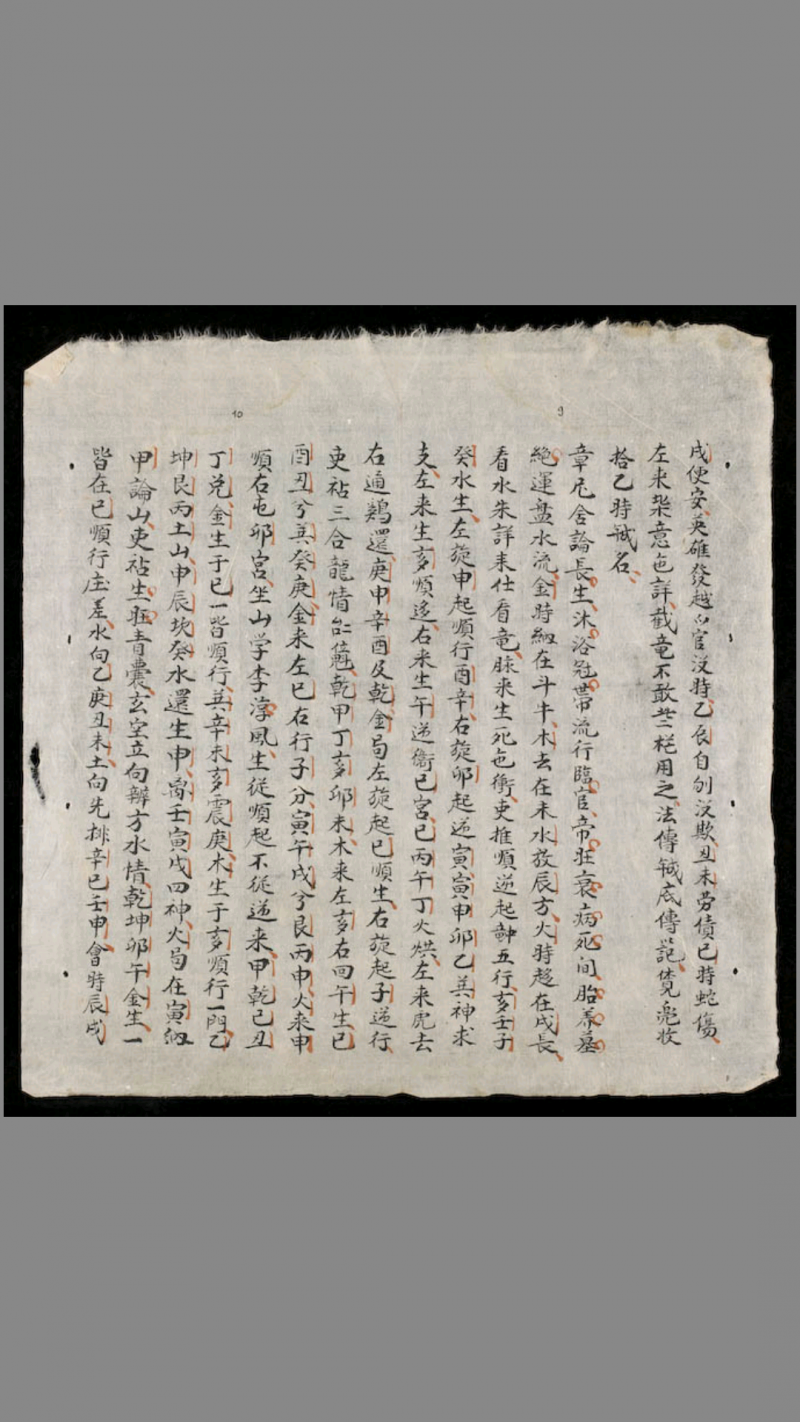 戌便安英雄發越白官沒時乙辰自刎沒欺丑未劳債巳時蛇傷
左来意色詳截竜不敢用之法傳鉞底傳
拾乙時鉞名
章凡舍論長生沐浴冠帶流行臨官帝旺衰病死间胎养墓
絶運盘水流金時納在斗牛木去在未水放辰方火時趍在戌長
看水朱詳耒仕看竜脉来生死色衝吏推順逆起五行亥壬子
癸水生左旋申起順行酉辛右旋卯起逆寅寅申卯乙其神求
支左来生亥順迻右来生午逆衝巳宮巳丙午丁火烘左来虎去
右通鷄還庚申辛酉及乾金局左旋起巳順生右旋起子逆行
吏祜三合龍情乾甲丁亥卯未木来左亥右回午生巳
酉丑兮其癸庚金来左巳右行子分寅午戌兮艮丙申火来申
順右屯卯宮坐山学李淳風生從順起不從逆来甲乾己丑
丁兑金生于巳一皆順行其辛未亥震庚木生于亥順行一門乙
坤艮丙土山申辰坎癸水還生申离壬寅戌四神火局在寅納
甲論山吏祜生旺青囊玄空立向辨方水情乾坤卯午金生一
皆在巳順行庄差水向乙庚丑未土向先排辛巳壬申會時辰戌
10
9